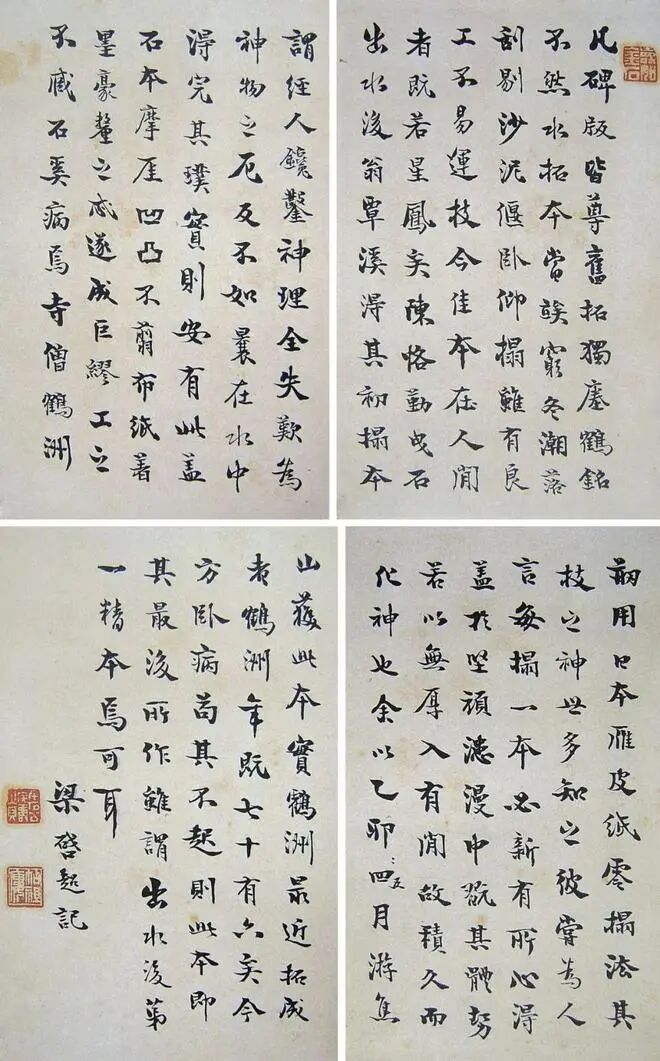 凡碑版皆尊舊拓獨瘞鶴銘
不然水拓本當竢窮冬潮落
刮剔沙泥偃臥仰搨雖有良
工不易運技今佳本在人間
者既若星鳳矣陳恪勤曳石
出水後翁覃溪得其初搨本
謂經人鑱鑿神理全失歎為
神物之厄反不如曩在水中
得完其璞實則安有此蓋
石本摩厓凹凸不翦布紙著
墨豪釐之忒遂成巨繆工之
不臧石奚病焉寺僧鶴洲
刱用日本雁皮紙零搨法其
技之神世多知之彼嘗為人
言每搨一本必新有所心得
蓋於堅頑漶漫中翫其體勢
若以無厚入有間故積久而
化神也余以乙卯四五月游焦
山獲此本實鶴洲最近拓成
者鶴洲年既七十有六矣今
方臥病苟其不起則此本即
其最後所作雖謂出水後第
一精本焉可耳
梁啓超記